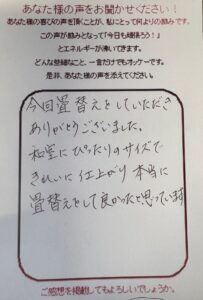 あなた様の声をお聞かせください!
あなた様の喜びの声を頂くことが、私にとって何よりの励みです。
この声が励みとなって「今日も頑張ろう!」
とエネルギーが沸いてきます。
どんな些細なこと、一言だけでもオッケーです。
是非、あなた様の声を添えてください。
今回畳替えをしていただき
ありがとうございました。
和室にぴったりのサイズで
きれいに仕上がり本当に
畳替えをして良かったと思っています
ご感想を掲載してもよろしいでしょうか。